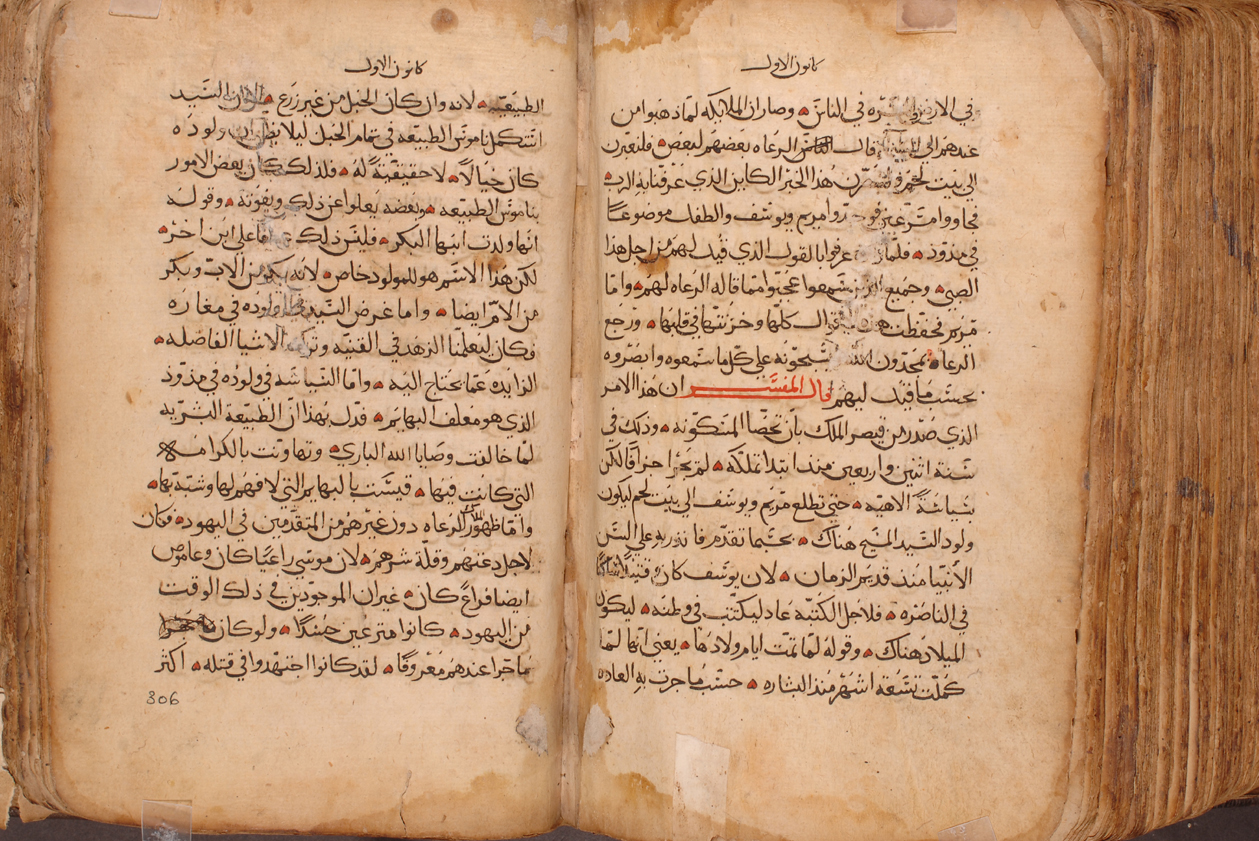 كانون الاول
في الارض المسره في الناس وصار ان الملايكه لما ذهبوا من
عندهم الى السما قال الرعاه بعضهم لبعض فلنعبرن
الي بيت لحم ولننظرن هذا الخبر الكاين الذي عرفنا به الرب
فجاووا مسترعين فوجدوا مريم ويوسف والطفل موضوعًا
في مذود فلما عرفوا بالقول الذي قيل لهم من اجل هذا
الصبي وجميع الذين سمعوا عجبوا مما قاله الرعاه لهم واما
مريم فحفظت هذا الاقوال كلها وخزنتها في قلبها ورجع
الرعاه يمجدون الله ويسبحونه علي كل ما سمعوه وابصروه
بحسب ما قيل ليهم قال المفسر ان هذا الامر
الذي صدر من قيصر الملك بان تحصا المسكونه وذلك في
سنة اثنين واربعين منذ ابتدا تملكه لم يجرا جزافًا لكن
بسياسة الاهيه حتي تطلع مريم ويوسف الي بيت لحم ليكون
ولود السيد المسيح هناك بحسبما تقدم فانذر به علي السن
الأنبيا منذ قديم الزمان لان يوسف كان وقتيذًا ساكنًا
في الناصره فلاجل الكتبه عاد ليكتتب في وطنه ليكون
الميلاد هناك وقوله لما تمت ايام ولادها يعني انها لما
كملت تسعة اشهر منذ البشاره حسب ما جرت به العاده
كانون الاول
الطبيعيه لانه وان كان الحبل من غير زرع الا ان السيد
استكمل ناموس الطبيعه في تمام الحبل ليلا يظن ان ولوده
كان خيالاً لا حقيقيةً له فلذلك كان بعض الامور
بناموس الطبيعه وبعضه يعلوا عن ذلك ويفوته وقوله
انها ولدت ابنها البكر فليس ذلك علي ابن اخر
لكن هذا الاسم هو للمولود خاص لانه بكر من الاب وبكر
من الام ايضا واما غرض السيد في ولوده في مغاره
فكان ليعلمنا الزهد في القنيه وترك الاشيا الفاضله
الزايده عما يحتاج اليه واما السياسه في ولوده في مذود
الذي هو معلف البهايم فدل بهذا ان الطبيعة البشريه
لما خالفت وصايا الله الباري وتهاونت بالكرامه
التي كانت فيها قيست بالبهايم التي لا فهم لها وشبه بها
واما ظهور للرعاه دون غيرهم من المتقدمين في اليهود فكان
لاجل دعتهم وقلة شرهم لان موسي راعيًا كان وعاموص
ايضا فراع كان غير ان الموجودين في ذلك الوقت
من اليهود كانوا مترعين حسدًا ولو كان
ما جرا عندهم معروفًا لقد كانوا اجتهدوا في قتله اكثر
306